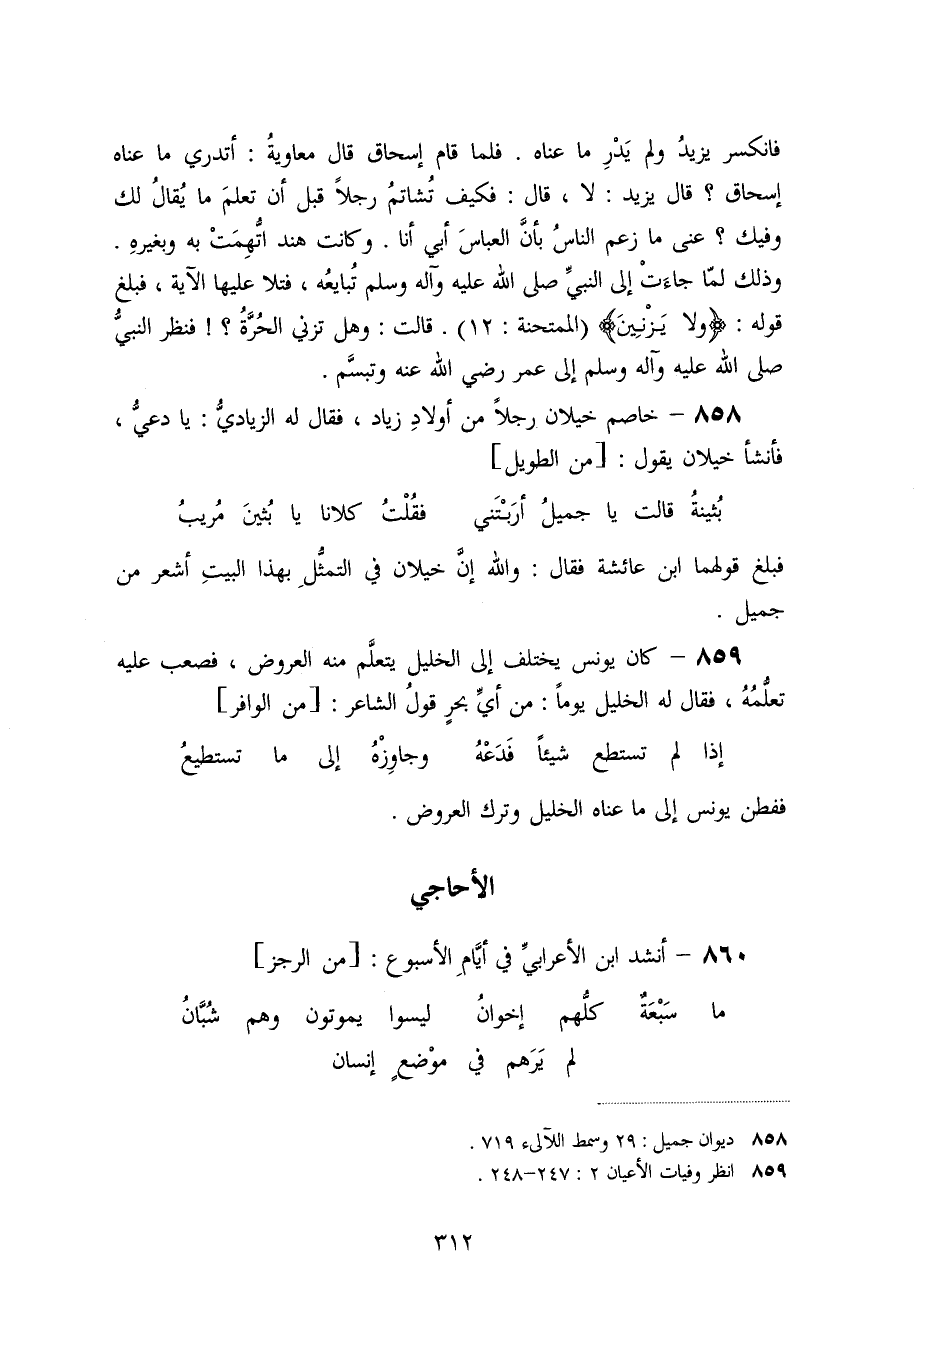 فانكسر يزيدُ ولم يَدْرِ ما عناه . فلما قام إسحاق قال معاويةُ : أتدري ما عناه
إسحاق ؟ قال يزيد : لا ، قال : فكيف تُشاتمُ رجلاً قبل أن تعلمَ ما يُقالُ لك
وفيك ؟ عنى ما زعم الناسُ بأنَّ العباسَ أبي أنا . وكانت هند اتُّهِمَتْ به وبغيرهِ .
وذلك لمّا جاءَتْ إلى النبيِّ صلى الله عليه وآله وسلم تُبايعُه ، فتلا عليها الآية ، فبلغ
قوله : ﴿ولا يَزْنِينَ﴾ (الممتحنة : ١٢) . قالت : وهل تزني الحُرَّةُ ؟ ! فنظر النبيُّ
صلى الله عليه وآله وسلم إلى عمر رضي الله عنه وتبسَّم .
٨٥٨ – خاصم خيلان رجلاً من أولادِ زياد ، فقال له الزياديُّ : يا دعيُّ ،
فأنشأ خيلان يقول : [من الطويل]
بُثينةُ قالت يا جميلُ أرَبْتَني فقُلْتُ كلانا يا بُثينَ مُريبُ
فبلغ قولهما ابن عائشة فقال : والله إنَّ خيلان في التمثُّلِ بهذا البيتِ أشعر من
جميل .
٨٥٩ – كان يونس يختلف إلى الخليل يتعلَّم منه العروض ، فصعب عليه
تعلُّمُهُ ، فقال له الخليل يوماً : من أيِّ بحرٍ قولُ الشاعر : [من الوافر]
إذا لم تستطع شيئاً فَدَعْهُ وجاوِزْهُ إلى ما تستطيعُ
ففطن يونس إلى ما عناه الخليل وترك العروض .
الأحاجي
٨٦٠ – أنشد ابن الأعرابيِّ في أيَّامِ الأسبوع : [من الرجز]
ما سَبْعَةٌ كلُّهم إخوانُ ليسوا يموتون وهم شُبَّانُ
لم يَرَهم في موْضعٍ إنسان
٨٥٨ ديوان جميل : ٢٩ وسمط اللآلىء ٧١٩ .
٨٥٩ انظر وفيات الأعيان ٢ : ٢٤٧–٢٤٨ .
٣١٢